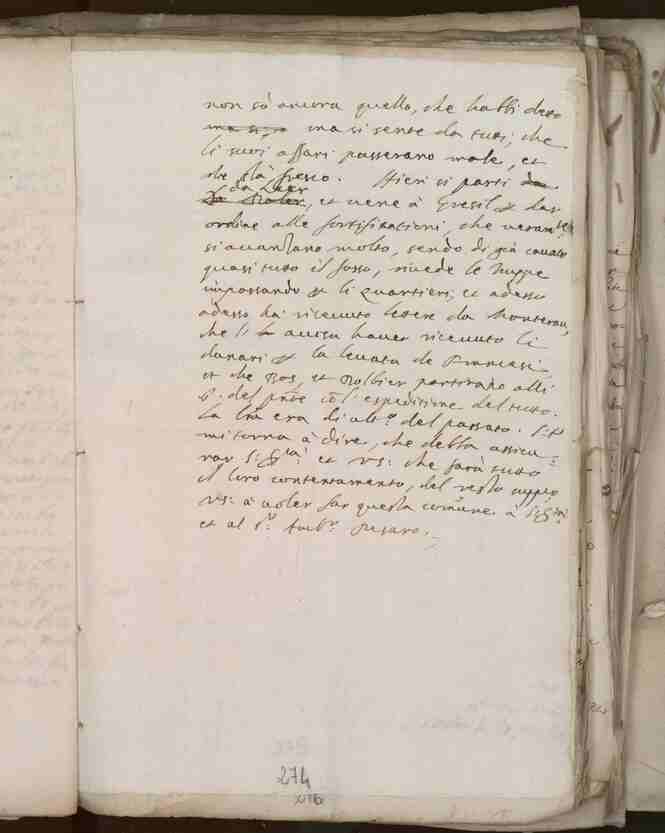 non sò ancora quello, che habbi deto
ma si sente da tutti, che
li suoi affari passerano male, et
che stà fresco. Hieri si partì
da Leer
et vene à Gresil dar
ordine alle fortificationi, che
si avanzano molto, sendo di già cavato
quasi tuto il fosso, rivede le truppe
impassando li quartieri, et adesso
adesso hà ricevuto letere da
che avisa haver ricevuto li
danari la levata de Francesi
et che Ros, et partirano alli
del pñte cõ l'espeditione del tutto.
La lrã era di del passato.
mi torna à dire, che debba assicu-
rar et vs: che farà tutto
il loro contentamento, del resto
vs: à voler far questa comune à
et al
274